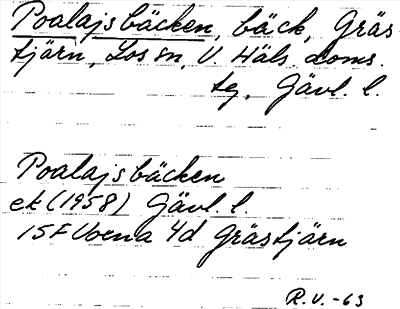 Poalajsbäcken, bäck, Gräs
tjärn, Los sn, V. Häls. doms.
tg, Gävl. l.
Poalajsbäcken
ek (1958) Gävl. l.
15F Voxna 4d Grästjärn
R.V. -63